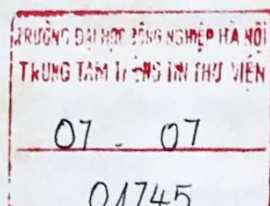 TRƯỜNG ĐẠI HỌC CÔNG NGHIỆP HÀ NỘI
TRUNG TÂM THÔNG TIN THƯ VIỆN
07 - 07
01745